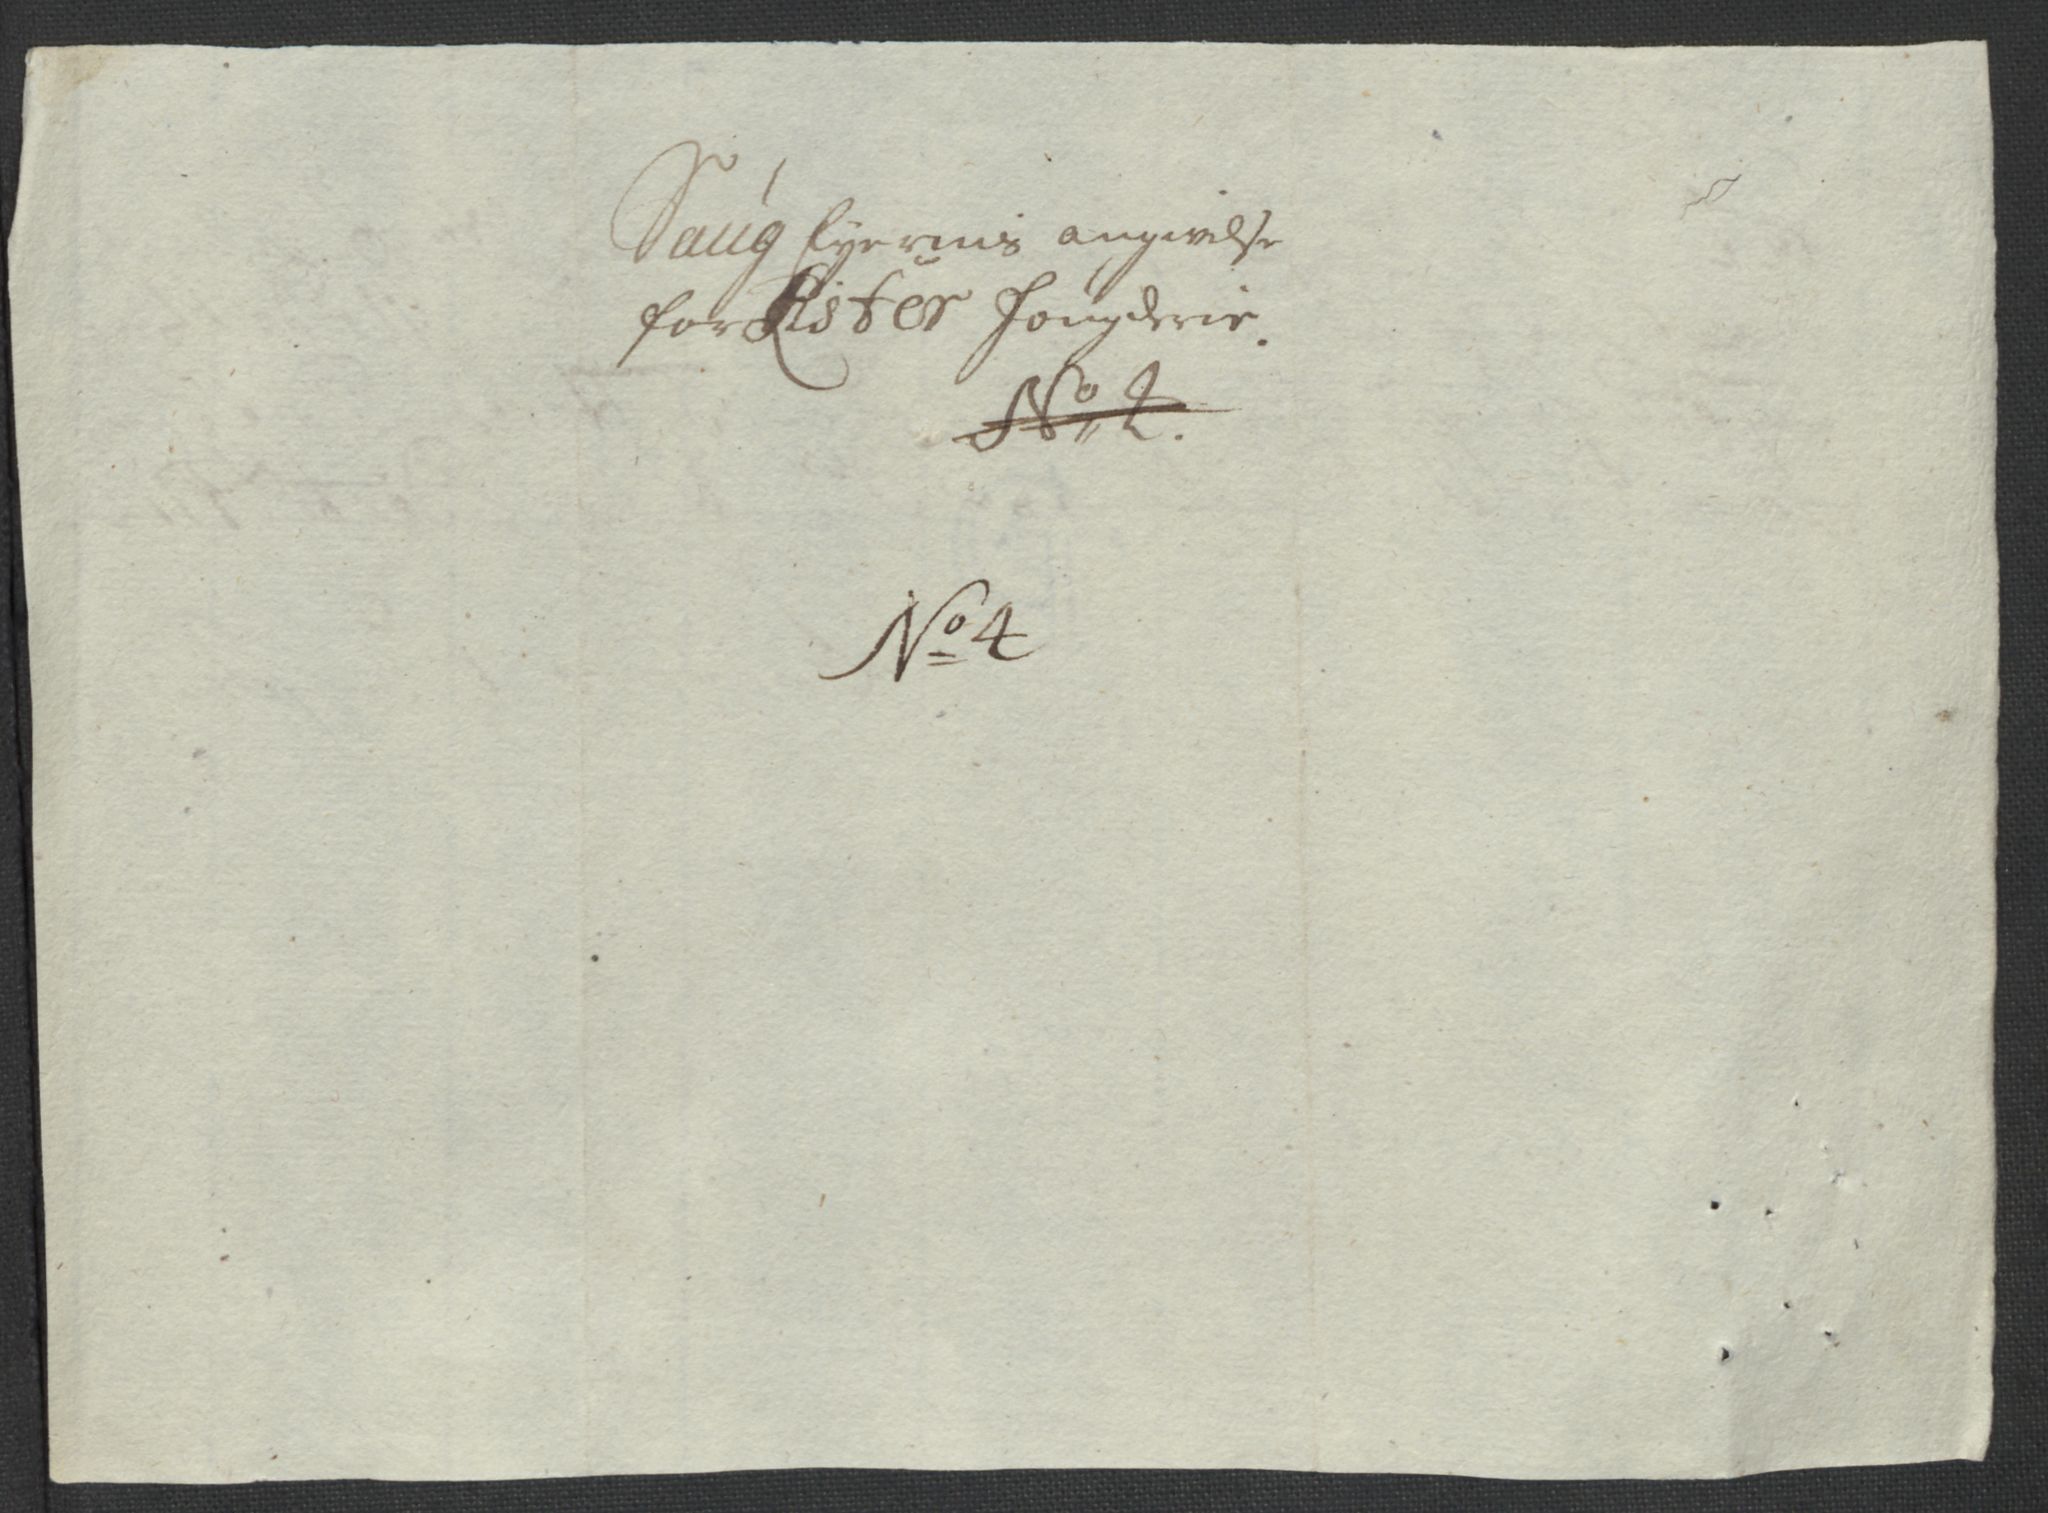 Saug Eyernis angivelse
for Lister fougderie.
No 4.
No 4